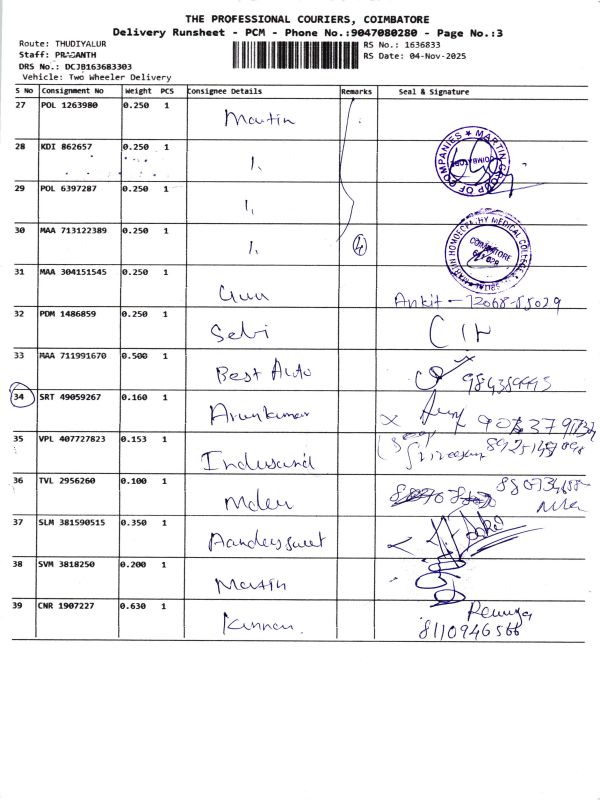 THE PROFESSIONAL COURIERS, COIMBATORE
Delivery Runsheet - PCM - Phone No.:9047080280 - Page No.:3
Route: THUDIYALUR
RS No.: 1636833
Staff: PRASANTH
RS Date: 04-Nov-2025
DRS No.: DCJB163683303
Vehicle: Two Wheeler Delivery
S No Consignment No Weight PCS Consignee Details Remarks Seal & Signature
27 POL 1263980 0.250 1 Martin
28 KDI 862657 0.250 1 MARTIN GROUP OF COMPANIES COIMBATORE
29 POL 6397287 0.250 1
30 MAA 713122389 0.250 1 4 MARTIN HOMOEOPATHY MEDICAL COLLEGE COIMBATORE
31 MAA 304151545 0.250 1 Ankit -
32 PDM 1486859 0.250 1 Selvi
33 MAA 711991670 0.500 1 Best Auto
34 SRT 49059267 0.160 1 Arunkumar
35 VPL 407727823 0.153 1 Indusuind
36 TVL 2956260 0.100 1
37 SLM 381590515 0.350 1
38 SVM 3818250 0.200 1 Martin
39 CNR 1907227 0.630 1 Kannan Remya
8110946566